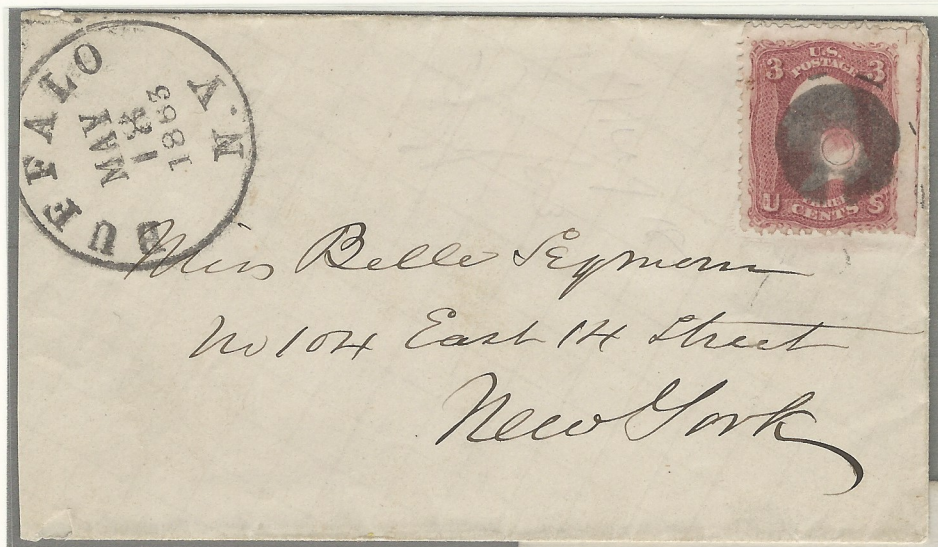 BUFFALO N.Y.
MAY
18
1863
3 U.S. 3
POSTAGE
U THREE S
CENTS
Miss Belle Seymour
No 104 East 14 Street
New York